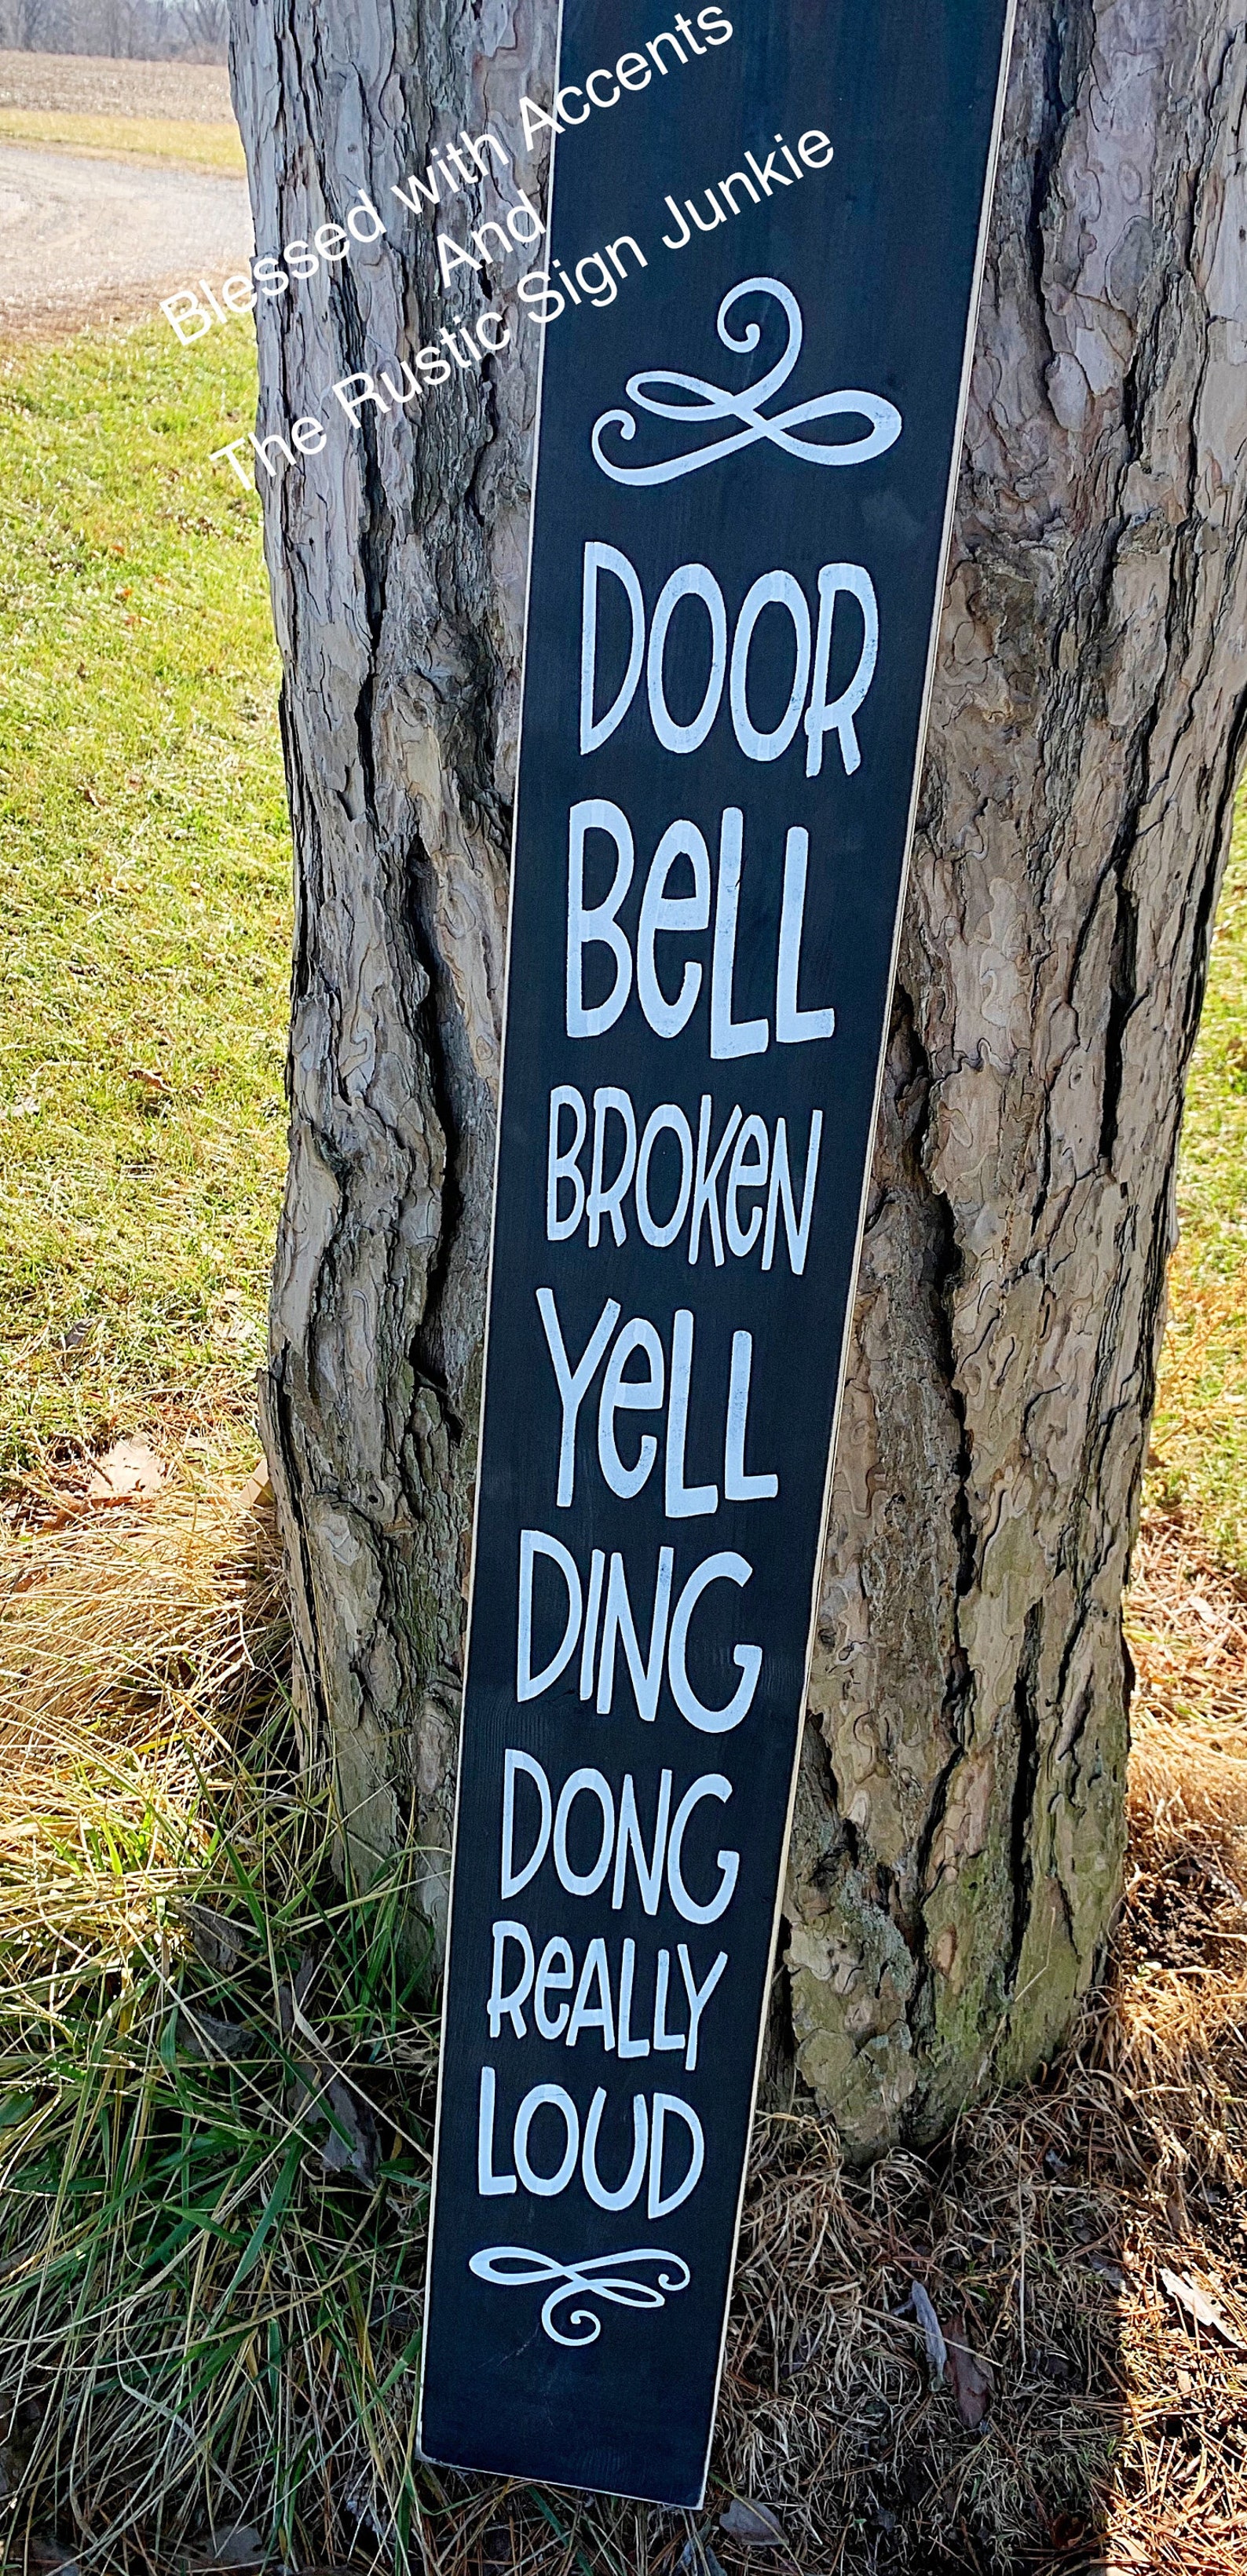 Blessed with Accents
And
The Rustic Sign Junkie
DOOR
BeLL
BROKeN
YeLL
DING
DONG
ReALLY
LOUD